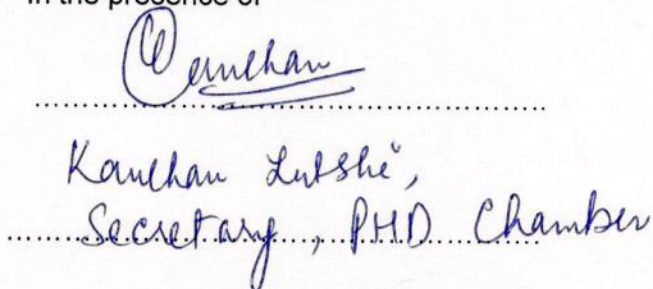 In the presence of
Kanchan Zutshi,
Secretary, PHD Chamber